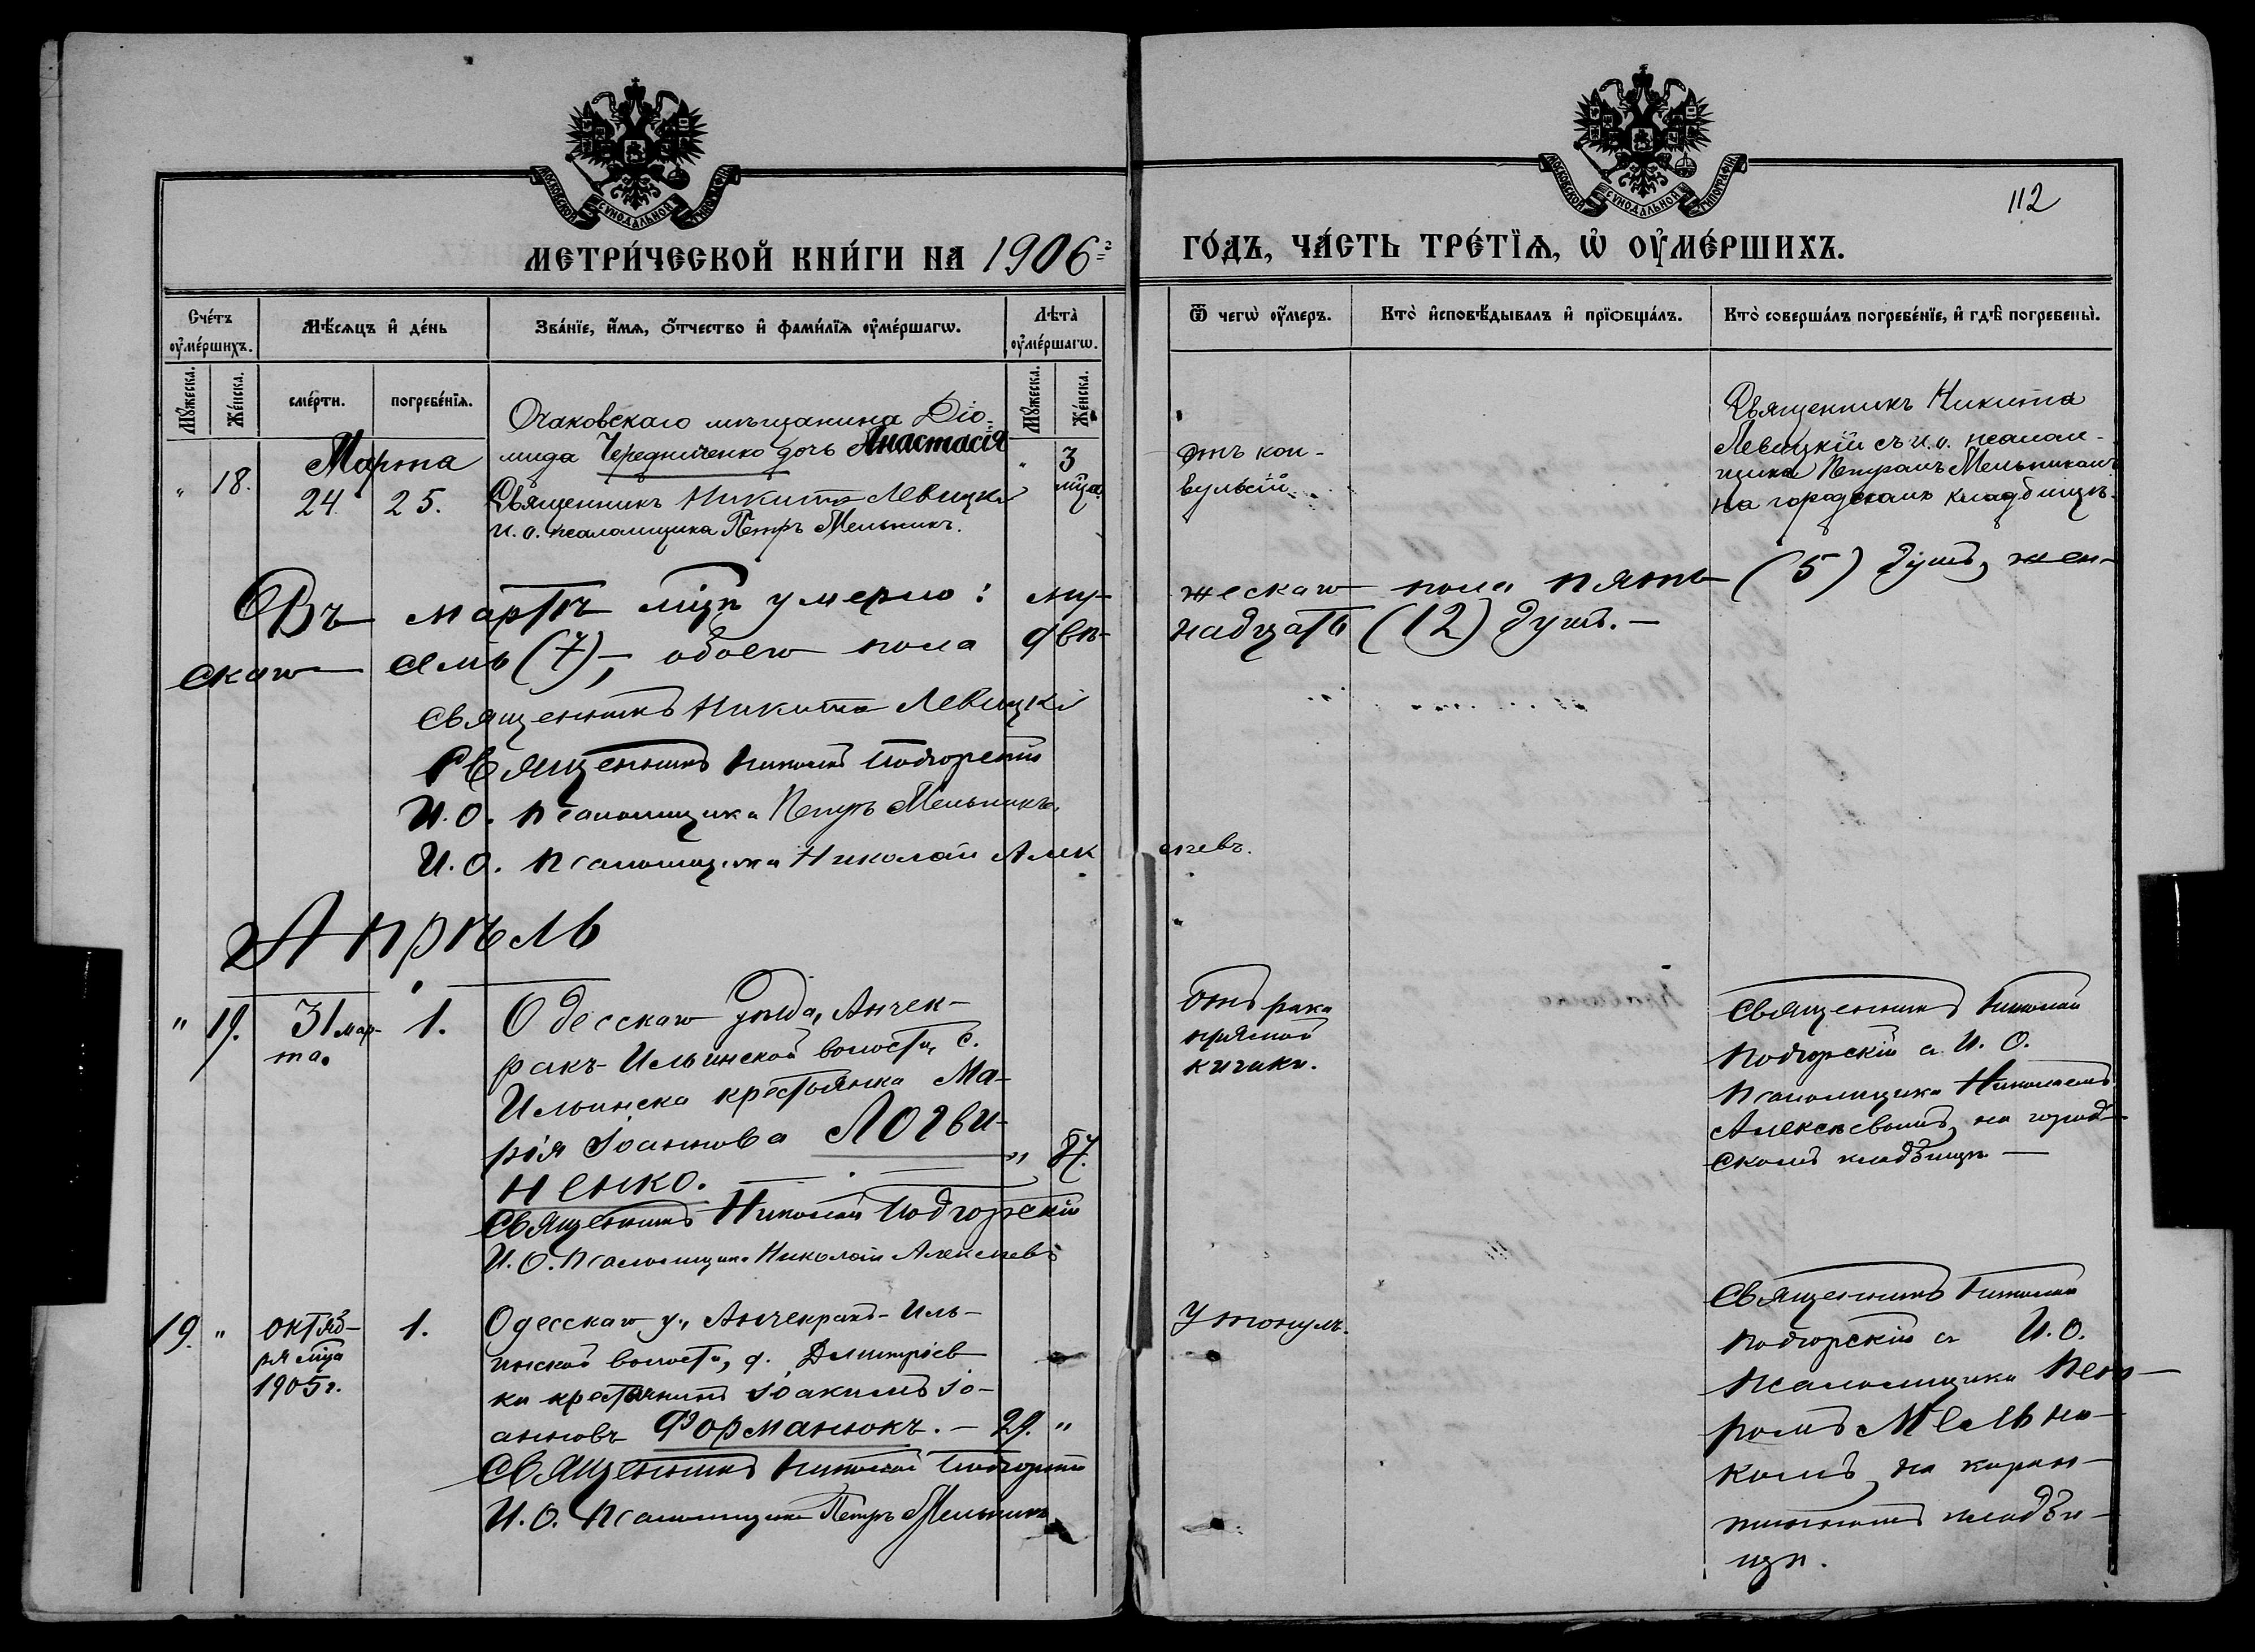 МОСКОВСКОЙ СѴНОДАЛЬНОЙ ТИПОГРАФІИ
МОСКОВСКОЙ СѴНОДАЛЬНОЙ ТИПОГРАФІИ
112
МЕТРИ́ЧЕСКОЙ КНИ́ГИ НА 1906 г
ГО́ДЪ, ЧА́СТЬ ТРЕ́ТЇѦ, Ѡ҆ ОУ҆МЕ́РШИХЪ.
Сче́тъ оу҆ме́ршихъ.
Мѣ́сѧцъ и҆ де́нь
Зва́нїе, и҆́мѧ, ѻ҆́тчество и҆ фами́лїѧ оу҆ме́ршагѡ.
Лѣта̀ оу҆ме́ршагѡ.
Ѿ чегѡ̀ оу҆́меръ.
Кто̀ и҆сповѣ́дывалъ и҆ прїѻбща́лъ.
Кто̀ соверша́лъ погребе́нїе, и҆ гдѣ̀ погребены̀.
Мꙋ́жеска.
Же́нска.
сме́рти.
погребе́нїѧ.
Мꙋ́жеска.
Же́нска.
" 18. Марта 24 25.
Очаковскаго мѣщанина Діо-
мида Чередниченко дочь Анастасія
" 3 мца
Священникъ Никита Левицкій
И. о. псаломщика Петръ Мельникъ.
Отъ кон-
вульсій
Священникъ Никита
Левицкій съ и. о. псалом-
щика Петромъ Мельникомъ
на городскомъ кладбищѣ.
Въ мартѣ мцѣ умерло: му-
жескаго пола пять (5) душъ, жен-
скаго семь (7), обоего пола двѣ-
надцать (12) душъ. —
Священникъ Никита Левицкій
Священникъ Николай Подгорскій
И. О. псаломщика Петръ Мельникъ
И. О. псаломщика Николай Алек
сѣевъ.
Апрѣль
" 19. 31 мар-
та. 1.
Одесскаго уѣзда, Анчек-
ракъ-Ильинской волости, с.
Ильинска крестьянка Ма-
рія Іоаннова Логви-
ненко.
" 87.
Священникъ Николай Подгорскій
И. О. псаломщика Николай Алексѣевъ
Отъ рака
прямой
кишки.
Священникъ Николай
Подгорскій съ И. О.
псаломщика Николаемъ
Алексѣевымъ, на город-
скомъ кладбищѣ —
19. " октяб-
ря мца
1905 г.
1.
Одесскаго у., Анчекракъ-Иль-
инской волости, д. Дмитріев-
ки крестьянинъ Іоакимъ Іо-
анновъ Форманюкъ. — 29. "
Священникъ Николай Подгорскій
И. О. псаломщика Петръ Мельникъ
Утонулъ.
Священникъ Николай
Подгорскій съ И. О.
псаломщика Пет-
ромъ Мельни-
комъ, на каран-
тинномъ кладби-
щѣ.